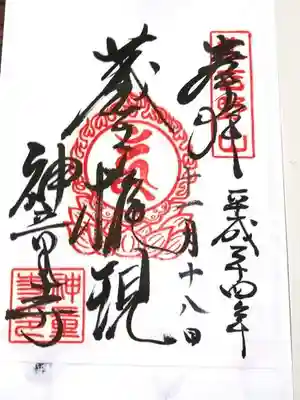 奉拝
平成廿四年
十一月十八日
蔵王権現
神童寺